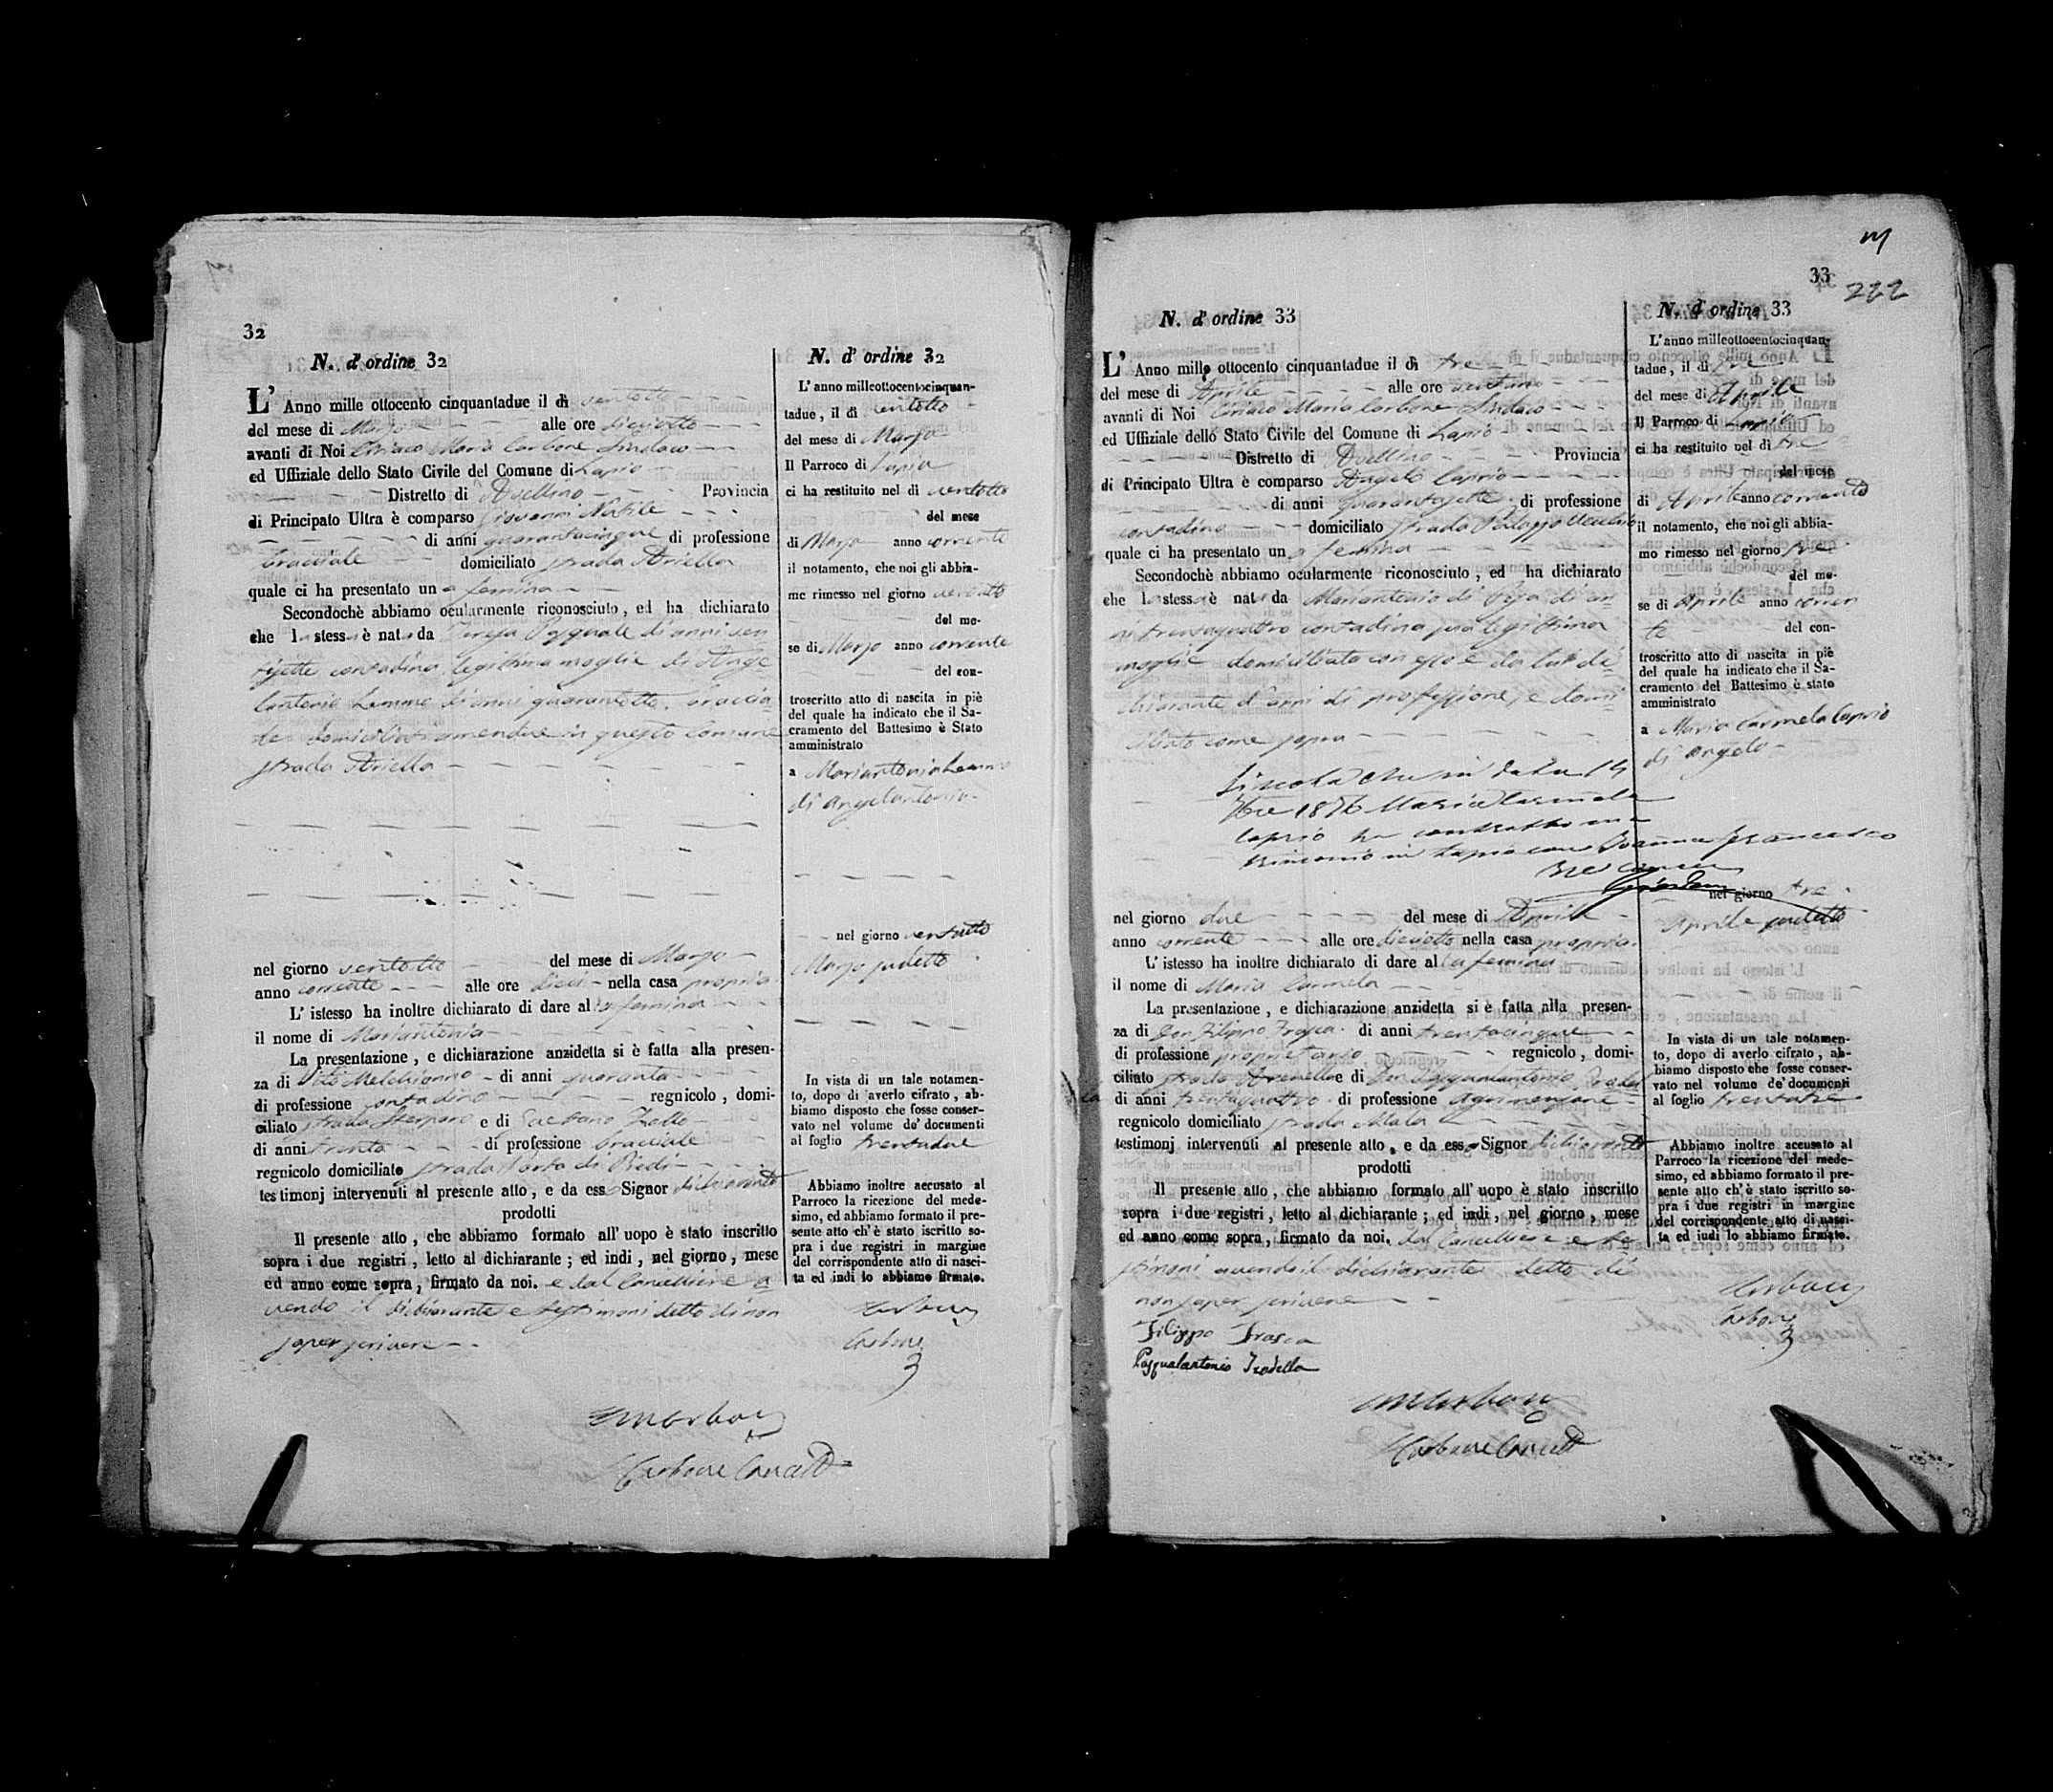 32
N. d' ordine 32
L' Anno mille ottocento cinquantadue il dì ventotto
del mese di Marzo alle ore dieciotto
avanti di Noi Ciriaco Maria Carbone Sindaco
ed Uffiziale dello Stato Civile del Comune di Lapio
Distretto di Avellino Provincia
di Principato Ultra è comparso Giovanni Nobile
di anni quarantacinque di professione
bracciale domiciliato strada Ariella
quale ci ha presentato una femina
Secondochè abbiamo ocularmente riconosciuto, ed ha dichiarato
che la stessa è nata da Tereja Pasquale di anni ven
tisette contadina legittima moglie di Ange
lantonio di anni quarantotto, braccia
le domiciliati amendue in questo Comune
strada Ariella
nel giorno ventotto del mese di Marzo
anno corrente alle ore dieci nella casa propria
L' istesso ha inoltre dichiarato di dare alla femina
il nome di Mariantonia
La presentazione, e dichiarazione anzidetta si è fatta alla presen-
za di Vito Melchionno di anni quaranta
di professione contadino regnicolo, domi-
ciliato strada e di Gaetano Zollo
di anni trenta di professione bracciale
regnicolo domiciliato strada Porta di Piedi
testimonj intervenuti al presente atto, e da esso Signor dichiarante
prodotti
Il presente atto, che abbiamo formato all' uopo è stato inscritto
sopra i due registri, letto al dichiarante; ed indi, nel giorno, mese
ed anno come sopra, firmato da noi. e dal Cancelliere a
vendo il dichiarante e testimoni detto di non
saper scrivere
Carbone Cancell
N. d' ordine 32
L' anno milleottocentocinquan-
tadue, il dì ventotto
del mese di Marzo
Il Parroco di Lapio
ci ha restituito nel dì ventotto
del mese
di Marzo anno corrente
il notamento, che noi gli abbia-
mo rimesso nel giorno ventotto
del me-
se di Marzo anno corrente
del con-
troscritto atto di nascita in piè
del quale ha indicato che il Sa-
cramento del Battesimo è Stato
amministrato
a Mariantonia
di Angelantonio
nel giorno ventotto
Marzo sudetto
In vista di un tale notamen-
to, dopo di averlo cifrato, ab-
biamo disposto che fosse conser-
vato nel volume de' documenti
al foglio trentadue
Abbiamo inoltre accusato al
Parroco la ricezione del mede-
simo, ed abbiamo formato il pre-
sente atto ch' è stato iscritto so-
pra i due registri in margine
del corrispondente atto di nasci-
ta ed indi lo abbiamo firmato.
Carbone
33
222
N. d' ordine 33
L' Anno mille ottocento cinquantadue il dì tre
del mese di Aprile alle ore
avanti di Noi Ciriaco Maria Carbone Sindaco
ed Uffiziale dello Stato Civile del Comune di Lapio
Distretto di Avellino Provincia
di Principato Ultra è comparso Angelo Caprio
di anni quarantasette di professione
contadino domiciliato strada Palazzo Vecchio
quale ci ha presentato una femina
Secondochè abbiamo ocularmente riconosciuto, ed ha dichiarato
che la stessa è nata da Mariantonia di di an
ni trentaquattro contadina sua legittima
moglie domiciliata con esso e da lui di
chiarante d'anni di professione, e domi
ciliato come sopra
1876 Maria Carmela
Caprio ha contratto ma
trimonio in Lapio con Francesco
nel giorno due del mese di Aprile
anno corrente alle ore dieciotto nella casa propria
L' istesso ha inoltre dichiarato di dare alla femina
il nome di Maria Carmela
La presentazione, e dichiarazione anzidetta si è fatta alla presen-
za di Don Filippo Frasca di anni trentacinque
di professione proprietario regnicolo, domi-
ciliato strada e di Don Pasqualantonio
di anni trentaquattro di professione agrimensore
regnicolo domiciliato strada
testimonj intervenuti al presente atto, e da esso Signor dichiarante
prodotti
Il presente atto, che abbiamo formato all' uopo è stato inscritto
sopra i due registri, letto al dichiarante; ed indi, nel giorno, mese
ed anno come sopra, firmato da noi. dal Cancelliere e te
stimoni avendo il dichiarante detto di
non saper scrivere
Filippo Frasca
Pasqualantonio
Carbone Cancell
N. d' ordine 33
L' anno milleottocentocinquan-
tadue, il dì tre
del mese di Aprile
Il Parroco di Lapio
ci ha restituito nel dì tre
del mese
di Aprile anno corrente
il notamento, che noi gli abbia-
mo rimesso nel giorno tre
del me-
se di Aprile anno corren
te del con-
troscritto atto di nascita in piè
del quale ha indicato che il Sa-
cramento del Battesimo è stato
amministrato
a Maria Carmela Caprio
di Angelo
nel giorno tre
Aprile sudetto
In vista di un tale notamen-
to, dopo di averlo cifrato, ab-
biamo disposto che fosse conser-
vato nel volume de' documenti
al foglio trentatre
Abbiamo inoltre accusato al
Parroco la ricezione del mede-
simo, ed abbiamo formato il pre-
sente atto ch' è stato iscritto so-
pra i due registri in margine
del corrispondente atto di nasci-
ta ed indi lo abbiamo firmato.
Carbone